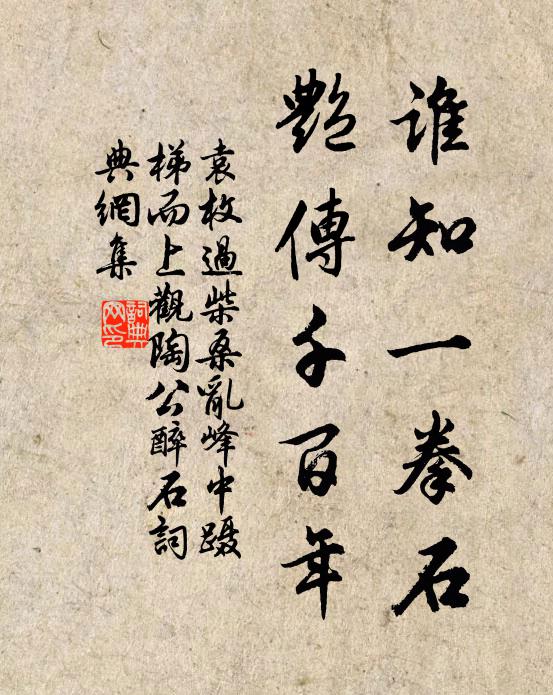 誰知一拳石
艷傳千百年
袁枚過柴桑亂峰中蹑
梯而上觀陶公醉石詞
典網集
詞典
网印